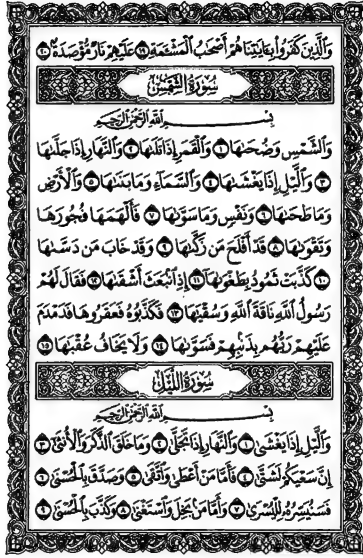 وَالَّذِينَ كَفَرُوا بِـَٔايَٰتِنَا هُمْ أَصْحَٰبُ الْمَشْـَٔمَةِ ١٩ عَلَيْهِمْ نَارٌ مُّؤْصَدَةٌ ٢٠
سُورَةُ الشَّمْسِ
بِسْمِ اللَّهِ الرَّحْمَٰنِ الرَّحِيمِ
وَالشَّمْسِ وَضُحَىٰهَا ١ وَالْقَمَرِ إِذَا تَلَىٰهَا ٢ وَالنَّهَارِ إِذَا جَلَّىٰهَا
٣ وَالَّيْلِ إِذَا يَغْشَىٰهَا ٤ وَالسَّمَآءِ وَمَا بَنَىٰهَا ٥ وَالْأَرْضِ
وَمَا طَحَىٰهَا ٦ وَنَفْسٍ وَمَا سَوَّىٰهَا ٧ فَأَلْهَمَهَا فُجُورَهَا
وَتَقْوَىٰهَا ٨ قَدْ أَفْلَحَ مَن زَكَّىٰهَا ٩ وَقَدْ خَابَ مَن دَسَّىٰهَا
١٠ كَذَّبَتْ ثَمُودُ بِطَغْوَىٰهَا ١١ إِذِ انۢبَعَثَ أَشْقَىٰهَا ١٢ فَقَالَ لَهُمْ
رَسُولُ اللَّهِ نَاقَةَ اللَّهِ وَسُقْيَٰهَا ١٣ فَكَذَّبُوهُ فَعَقَرُوهَا فَدَمْدَمَ
عَلَيْهِمْ رَبُّهُم بِذَنۢبِهِمْ فَسَوَّىٰهَا ١٤ وَلَا يَخَافُ عُقْبَٰهَا ١٥
سُورَةُ اللَّيْلِ
بِسْمِ اللَّهِ الرَّحْمَٰنِ الرَّحِيمِ
وَالَّيْلِ إِذَا يَغْشَىٰ ١ وَالنَّهَارِ إِذَا تَجَلَّىٰ ٢ وَمَا خَلَقَ الذَّكَرَ وَالْأُنثَىٰٓ ٣
إِنَّ سَعْيَكُمْ لَشَتَّىٰ ٤ فَأَمَّا مَنْ أَعْطَىٰ وَاتَّقَىٰ ٥ وَصَدَّقَ بِالْحُسْنَىٰ ٦
فَسَنُيَسِّرُهُ لِلْيُسْرَىٰ ٧ وَأَمَّا مَنۢ بَخِلَ وَاسْتَغْنَىٰ ٨ وَكَذَّبَ بِالْحُسْنَىٰ ٩